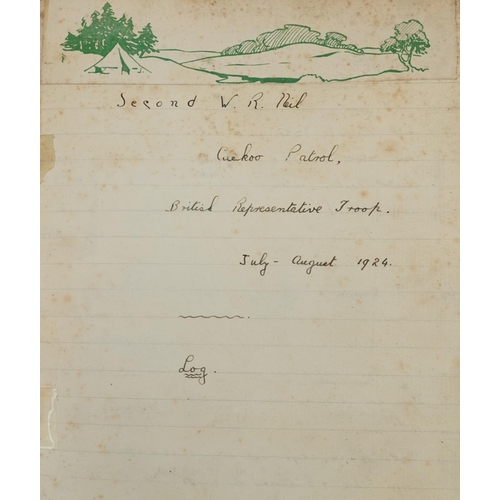 Second W. R. Neil
Cuckoo Patrol,
British Representative Troop.
July - August 1924.
Log.